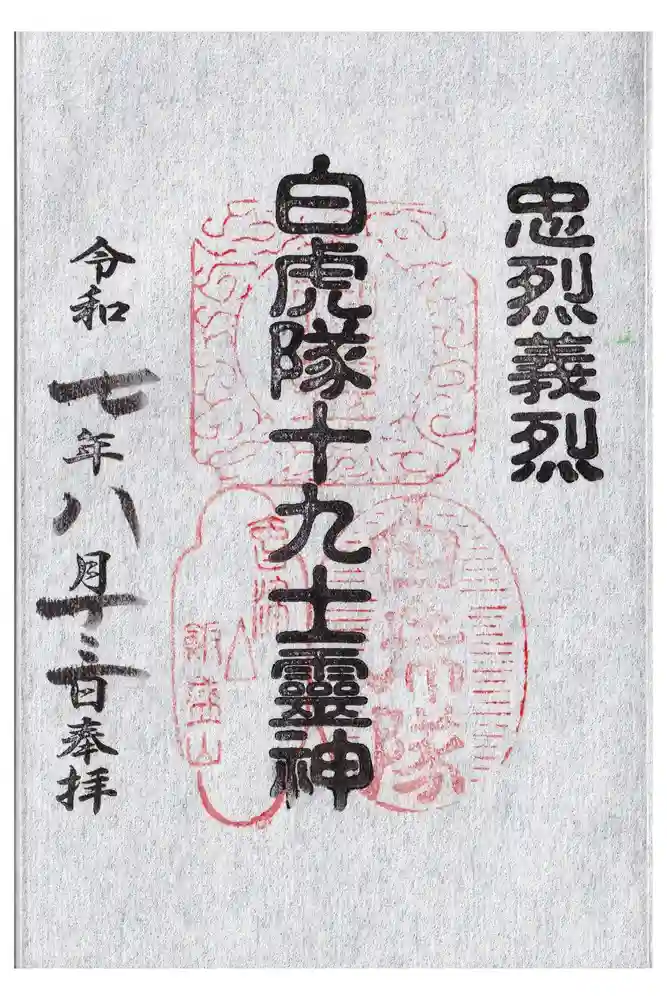 忠烈義烈
白虎隊十九士靈神
飯盛山
白虎隊
令和七年八月十三日奉拝